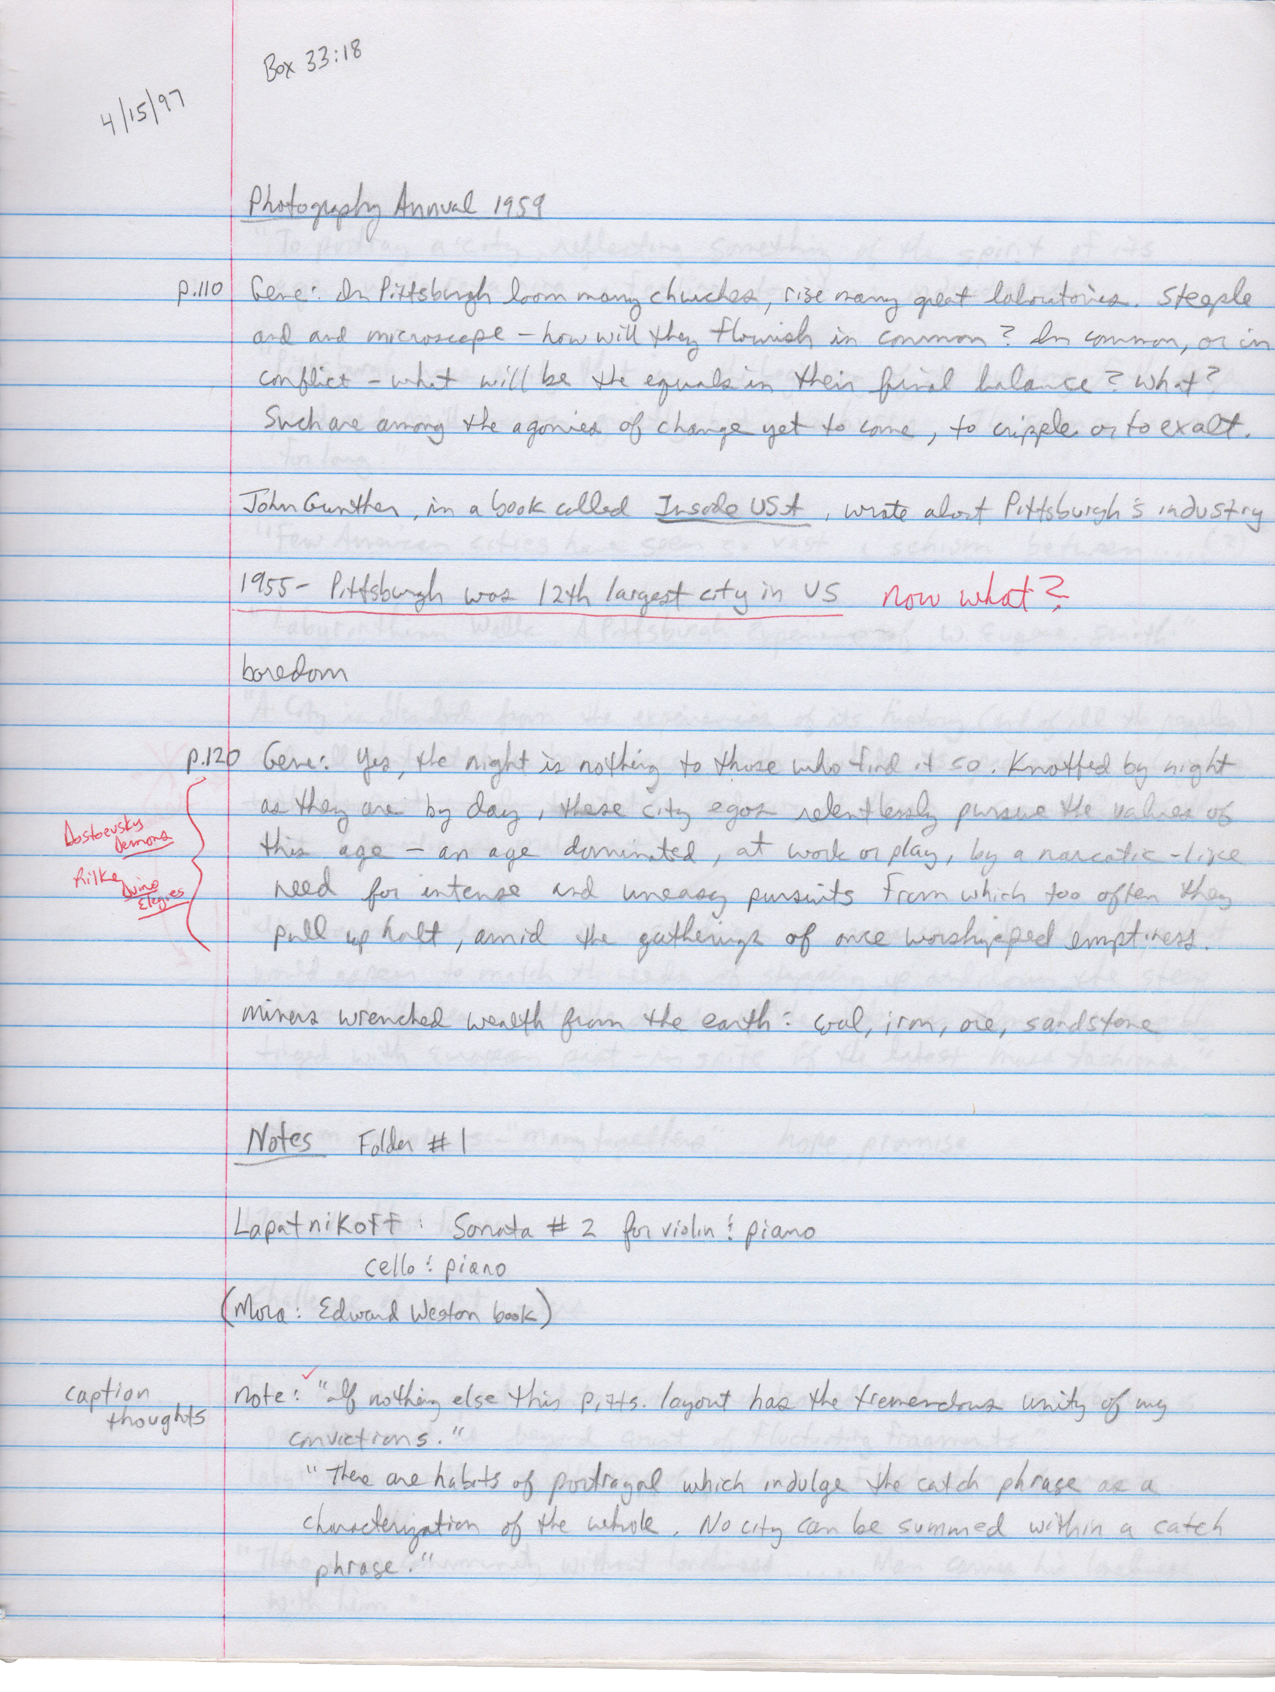 Box 33:18
4/15/97
Photography Annual 1959
p.110 Gene: In Pittsburgh loom many churches, rise many great laboratories. Steeple
and and microscope – how will they flourish in common? In common, or in
conflict – what will be the equals in their final balance? What?
Such are among the agonies of change yet to come, to cripple or to exalt.
John Gunther, in a book called Inside USA, wrote about Pittsburgh's industry
1955 – Pittsburgh was 12th largest city in US now what?
boredom
p.120 Gene: Yes, the night is nothing to those who find it so. Knotted by night
as they are by day, these city egos relentlessly pursue the values of
Dostoevsky
Demons
this age – an age dominated, at work or play, by a narcotic-like
Rilke Duino
Elegies
need for intense and uneasy pursuits from which too often they
pull up halt, amid the gatherings of once worshipped emptiness.
miners wrenched wealth from the earth: coal, iron, ore, sandstone
Notes Folder #1
Lapatnikoff: Sonata #2 for violin & piano
cello & piano
(Mora: Edward Weston book)
caption
thoughts
note: "If nothing else this Pitts. layout has the tremendous unity of my
convictions."
"There are habits of portrayal which indulge the catch phrase as a
characterization of the whole. No city can be summed within a catch
phrase."